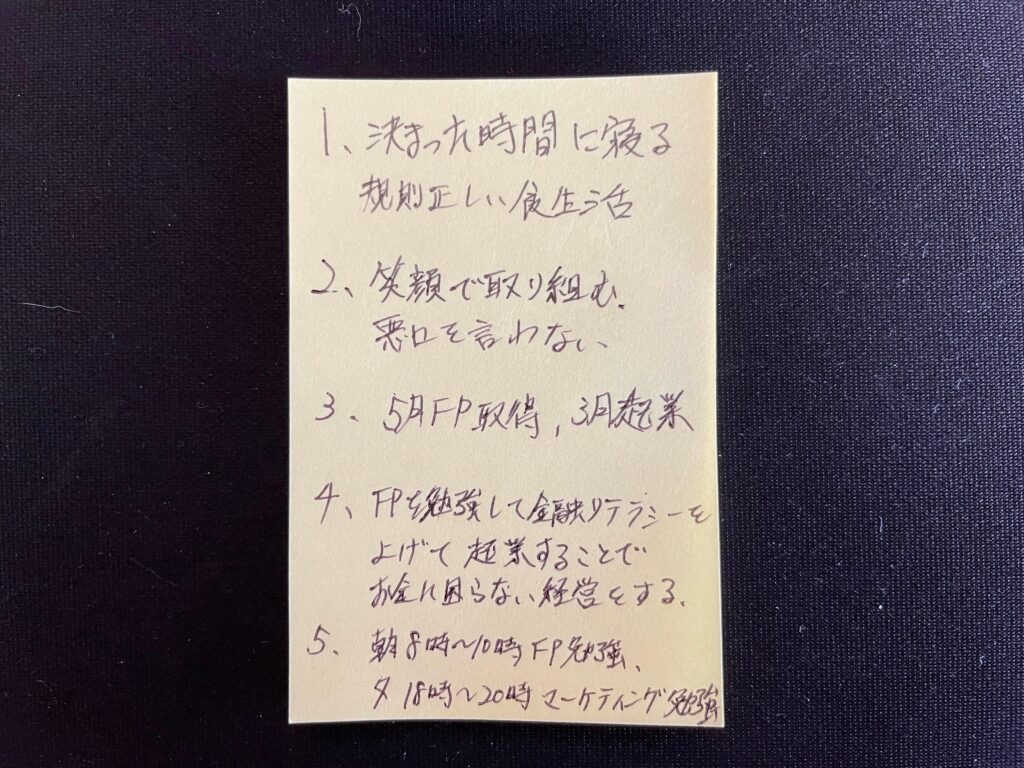 1、決まった時間に寝る
規則正しい食生活
2、笑顔で取り組む、
悪口を言わない、
3、5月FP取得,3月起業
4、FPを勉強して金融リテラシーを
上げて起業することで
お金に困らない経営をする、
5、朝8時〜10時FP勉強、
夕18時〜20時マーケティング勉強